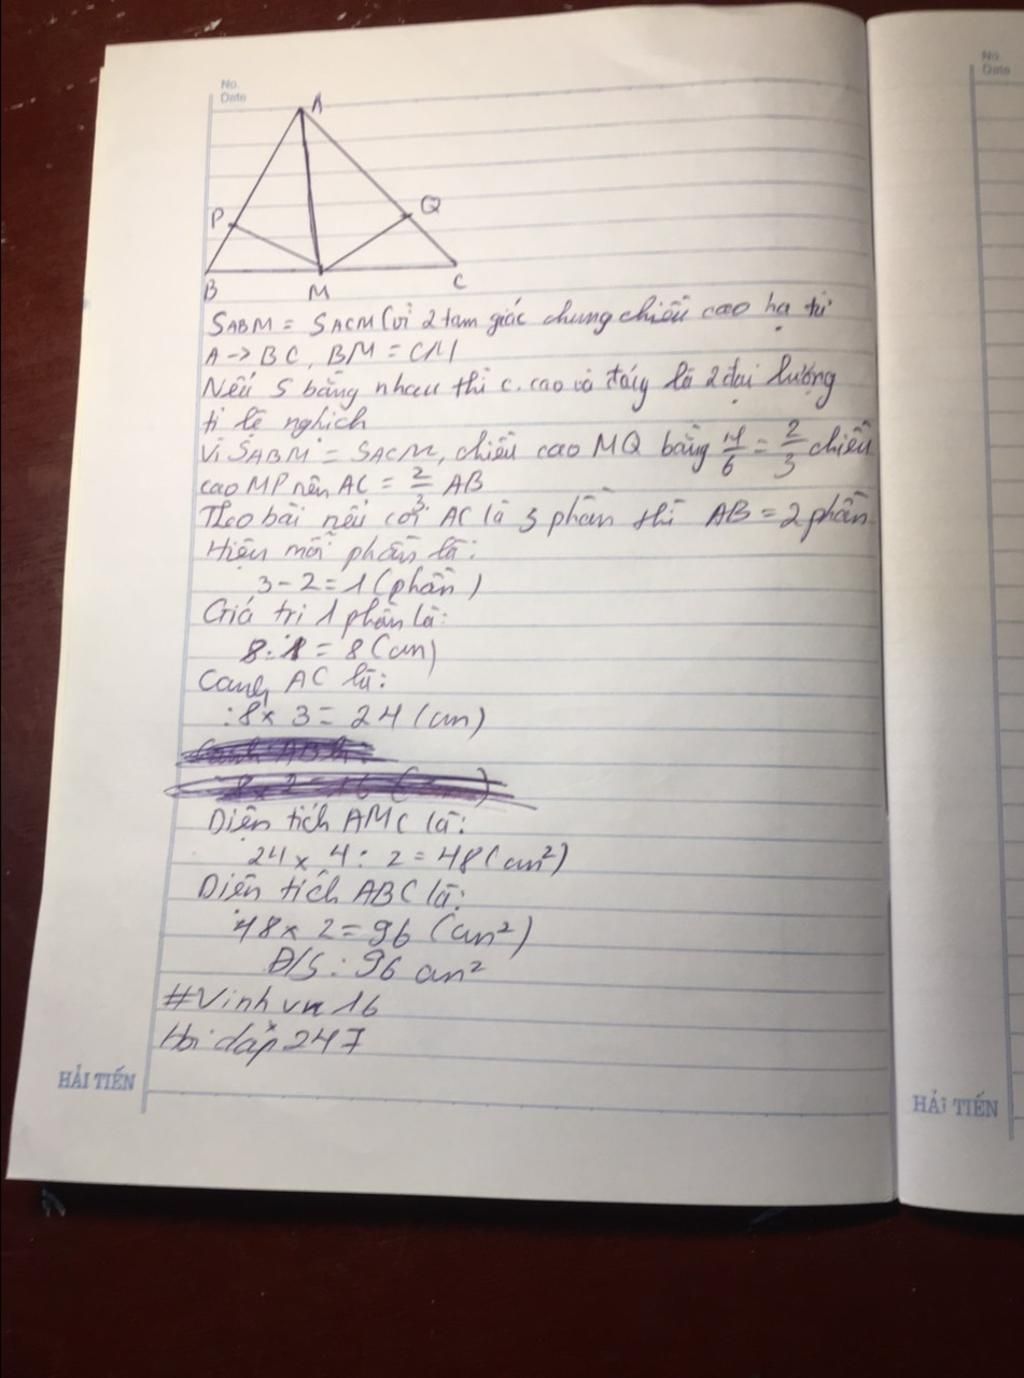 No.
Date
No.
Date
A
P
Q
B
M
C
SABM = SACM (vì 2 tam giác chung chiều cao hạ từ
A -> BC, BM = CM
Nếu S bằng nhau thì c. cao và đáy là 2 đại lượng
tỉ lệ nghịch
Vì SABM = SACM, chiều cao MQ bằng 4/6 = 2/3 chiều
cao MP nên AC = 2/3 AB
Theo bài nếu coi AC là 3 phần thì AB = 2 phần
Hiệu mỗi phần là:
3 - 2 = 1 (phần)
Giá trị 1 phần là:
8 : 1 = 8 (cm)
Cạnh AC là:
8 x 3 = 24 (cm)
Cạnh AB là:
8 x 2 = 16 (cm)
Diện tích AMC là:
24 x 4 : 2 = 48 (cm²)
Diện tích ABC là:
48 x 2 = 96 (cm²)
Đ/S : 96 cm²
#Vinhvn16
Hỏi đáp 247
HẢI TIẾN
HẢI TIẾN